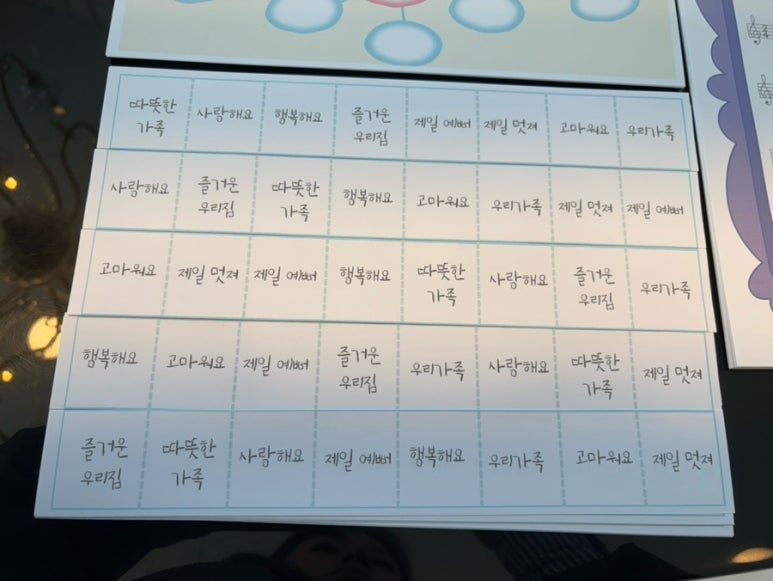 따뜻한 가족 사랑해요 행복해요 즐거운 우리집 제일 예뻐 제일 멋져 고마워요 우리가족
사랑해요 즐거운 우리집 따뜻한 가족 행복해요 고마워요 우리가족 제일 멋져 제일 예뻐
고마워요 제일 멋져 제일 예뻐 행복해요 따뜻한 가족 사랑해요 즐거운 우리집 우리가족
행복해요 고마워요 제일 예뻐 즐거운 우리집 우리가족 사랑해요 따뜻한 가족 제일 멋져
즐거운 우리집 따뜻한 가족 사랑해요 제일 예뻐 행복해요 우리가족 고마워요 제일 멋져